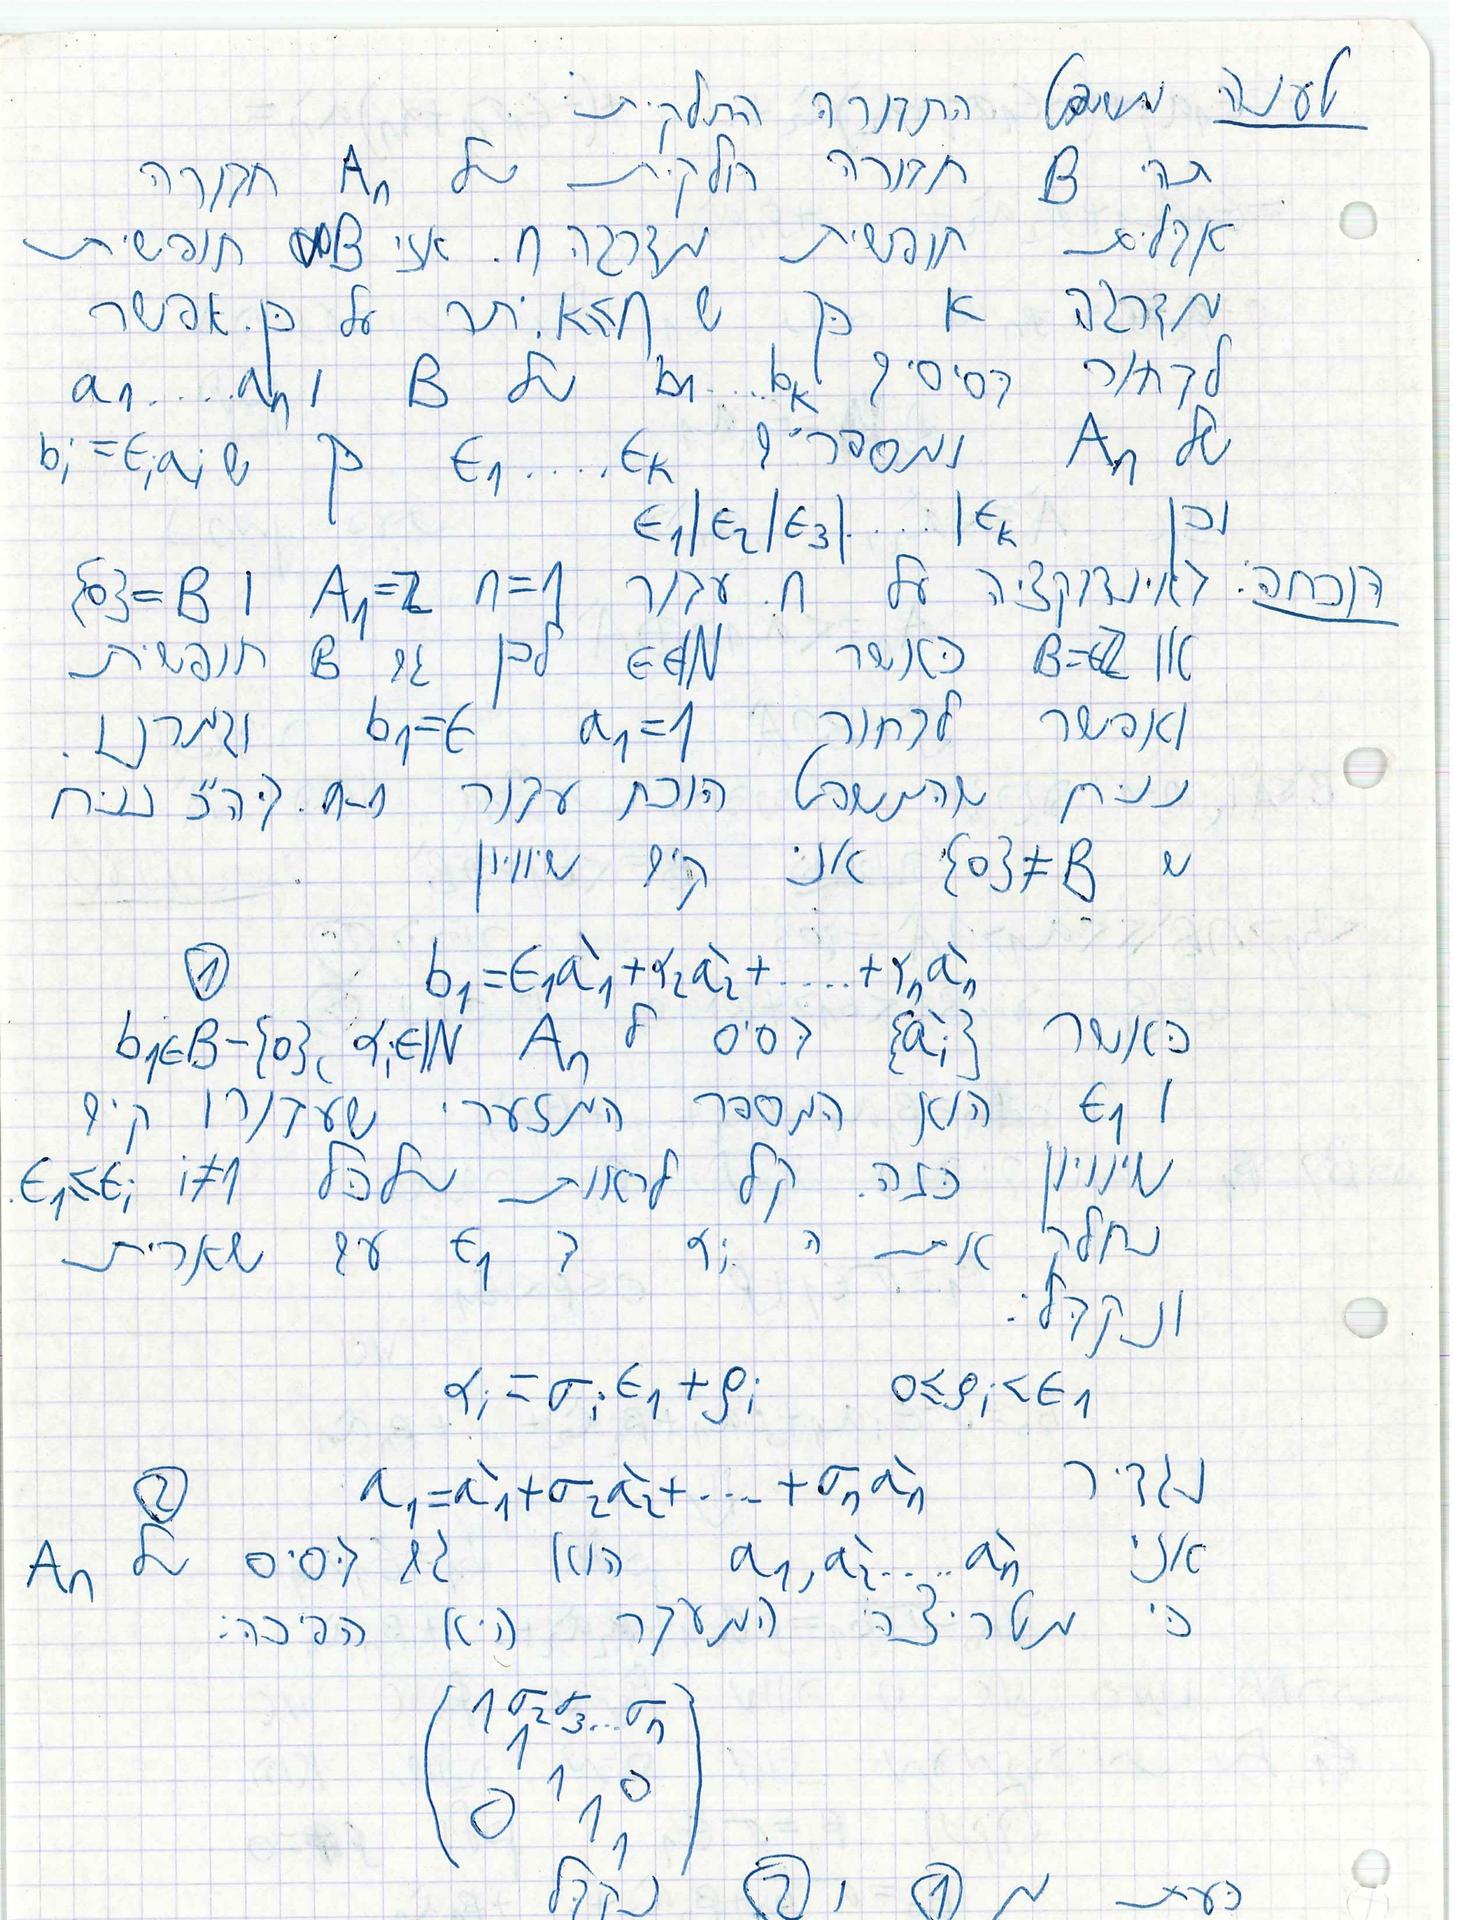 טענה משפט החבורה החלקית:
תהי B חבורה חלקית של Aₙ חבורה
אבלית חופשית מדרגה n. אזי B חופשית
מדרגה k כך ש k≤n. יתר על כן. אפשר
לבחור בסיסים b₁....bₖ של B ו a₁....aₙ
של Aₙ ומספרים ϵ₁.....ϵₖ כך ש bᵢ=ϵᵢaᵢ
וכן ϵ₁|ϵ₂|ϵ₃|....|ϵₖ
הוכחה: באינדוקציה על n. עבור n=1 A₁=ℤ ו B={0}
או B=ϵℤ כאשר ϵ∈ℕ לכן גם B חופשית
ואפשר לבחור a₁=1 b₁=ϵ וגמרנו.
נניח שהמשפט הוכח עבור n-1. בה"כ נניח
ש B≠{0} אזי קים שיוויון
b₁=ϵ₁a`₁+α₂a`₂+....+αₙa`ₙ ①
כאשר {a`ᵢ} בסיס ל Aₙ b₁∈B-{0}, αᵢ∈ℕ
ו ϵ₁ הוא המספר המזערי שעבורו קים
שיוויון כזה. קל לראות שלכל i≠1 ϵ₁≤ϵᵢ.
נחלק את ה αᵢ ב ϵ₁ עם שארית
ונקבל:
αᵢ=σᵢϵ₁+ρᵢ 0≤ρᵢ<ϵ₁
נגדיר a₁=a`₁+σ₂a`₂+....+σₙa`ₙ ②
אזי a₁,a`₂.....a`ₙ הוא גם בסיס של Aₙ
כי מטריצה המעבר היא הפיכה:
1 σ₂ σ₃...σₙ
1
1 0
0 1
1
כעת מ ① ו ② נקבל